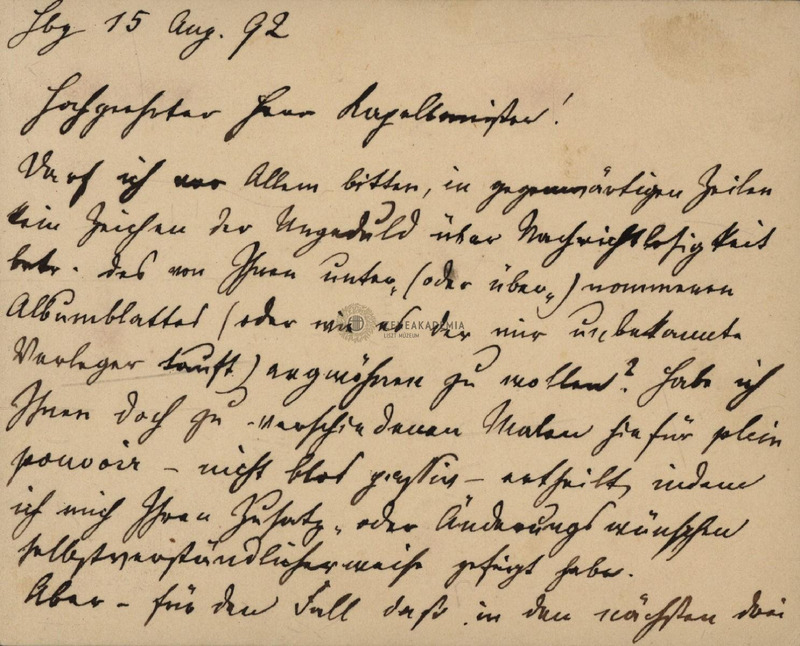 Hbg 15 Aug. 92
Hochgeehrter Herr Kapellmeister!
Darf ich vor Allem bitten, in gegenwärtigen Zeilen
kein Zeichen der Ungeduld über Nachrichtslosigkeit
betr. des von Ihnen unter„ (oder über„) nommenen
Albumblattes (oder wie es der mir unbekannte
Verleger tauft) argwöhnen zu wollen? Habe ich
Ihnen doch zu verschiedenen Malen hiefür plein
pouvoir – nicht blos passiv – ertheilt, indem
ich mich Ihren Zusatz„ oder Änderungswünschen
selbstverständlicherweise gefügt habe.
Aber – für den Fall daß in den nächsten drei
ZENEAKADÉMIA
LISZT MÚZEUM